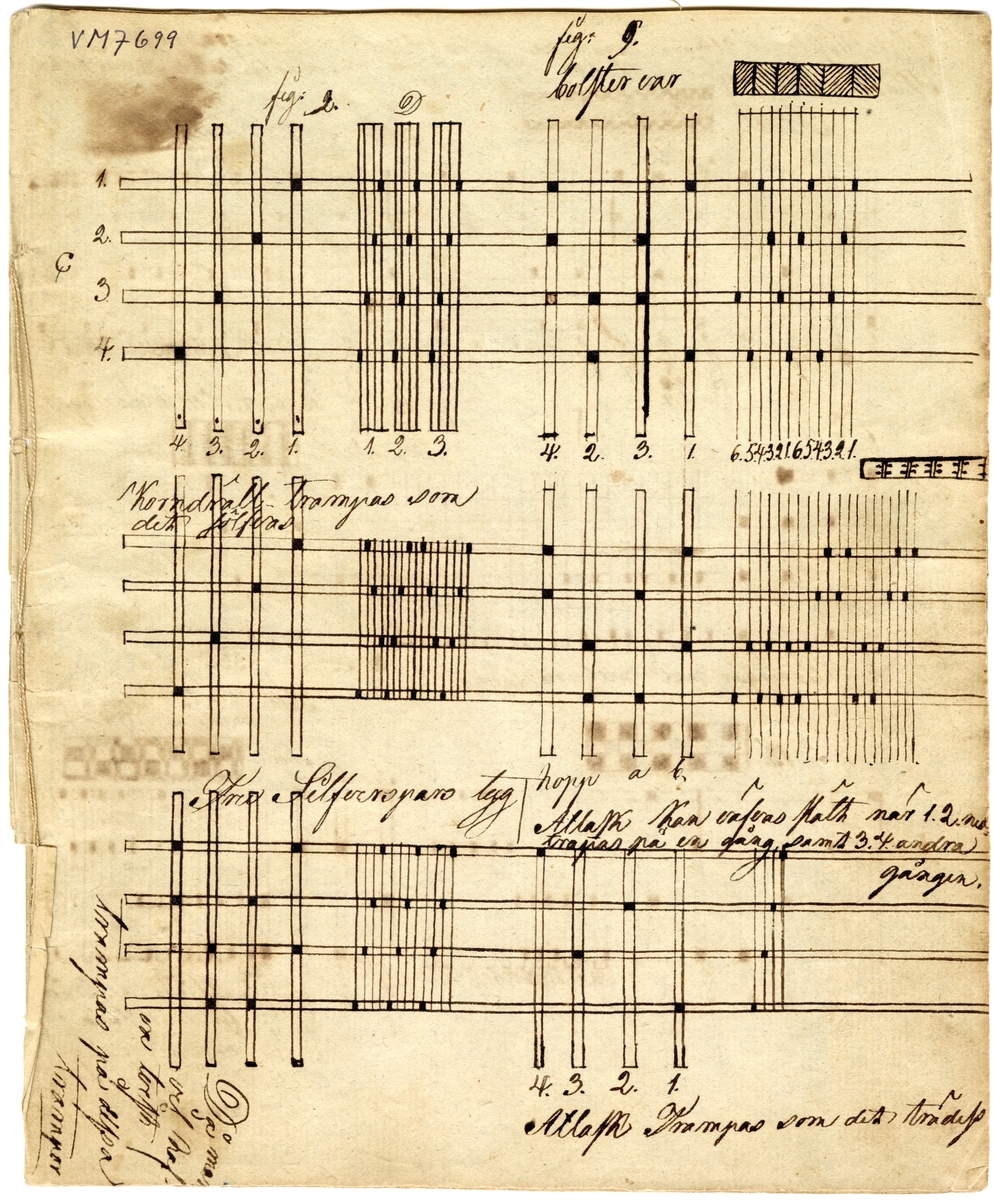 VM7699
fig: 9.
bolster var
fig: 2. D
1.
2.
C
3
4.
4. 3. 2. 1. 1. 2. 3. 4. 2. 3. 1. 6.5.4.3.2.1.6.5.4.3.2.1.
Korndräll- trampas som
det sölfvas
Silfverspars tyg
hopp a b.
Atlask Kan väfvas slätt när 1.2.
trapas på en gång samt 3.4. andra
gången.
4. 3. 2. 1.
Atlask Trampas som det trädes
trampas på dessa
trampor